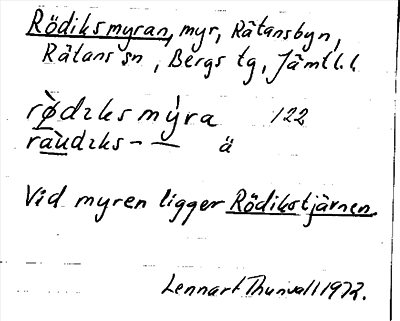 Rödiksmyran, myr, Rätansbyn,
Rätans sn, Bergs tg, Jämtl. l
rø̀dıksmýra 122
ràudıks- — ä
Vid myren ligger Rödikstjärnen.
Lennart Thunvall 1972.